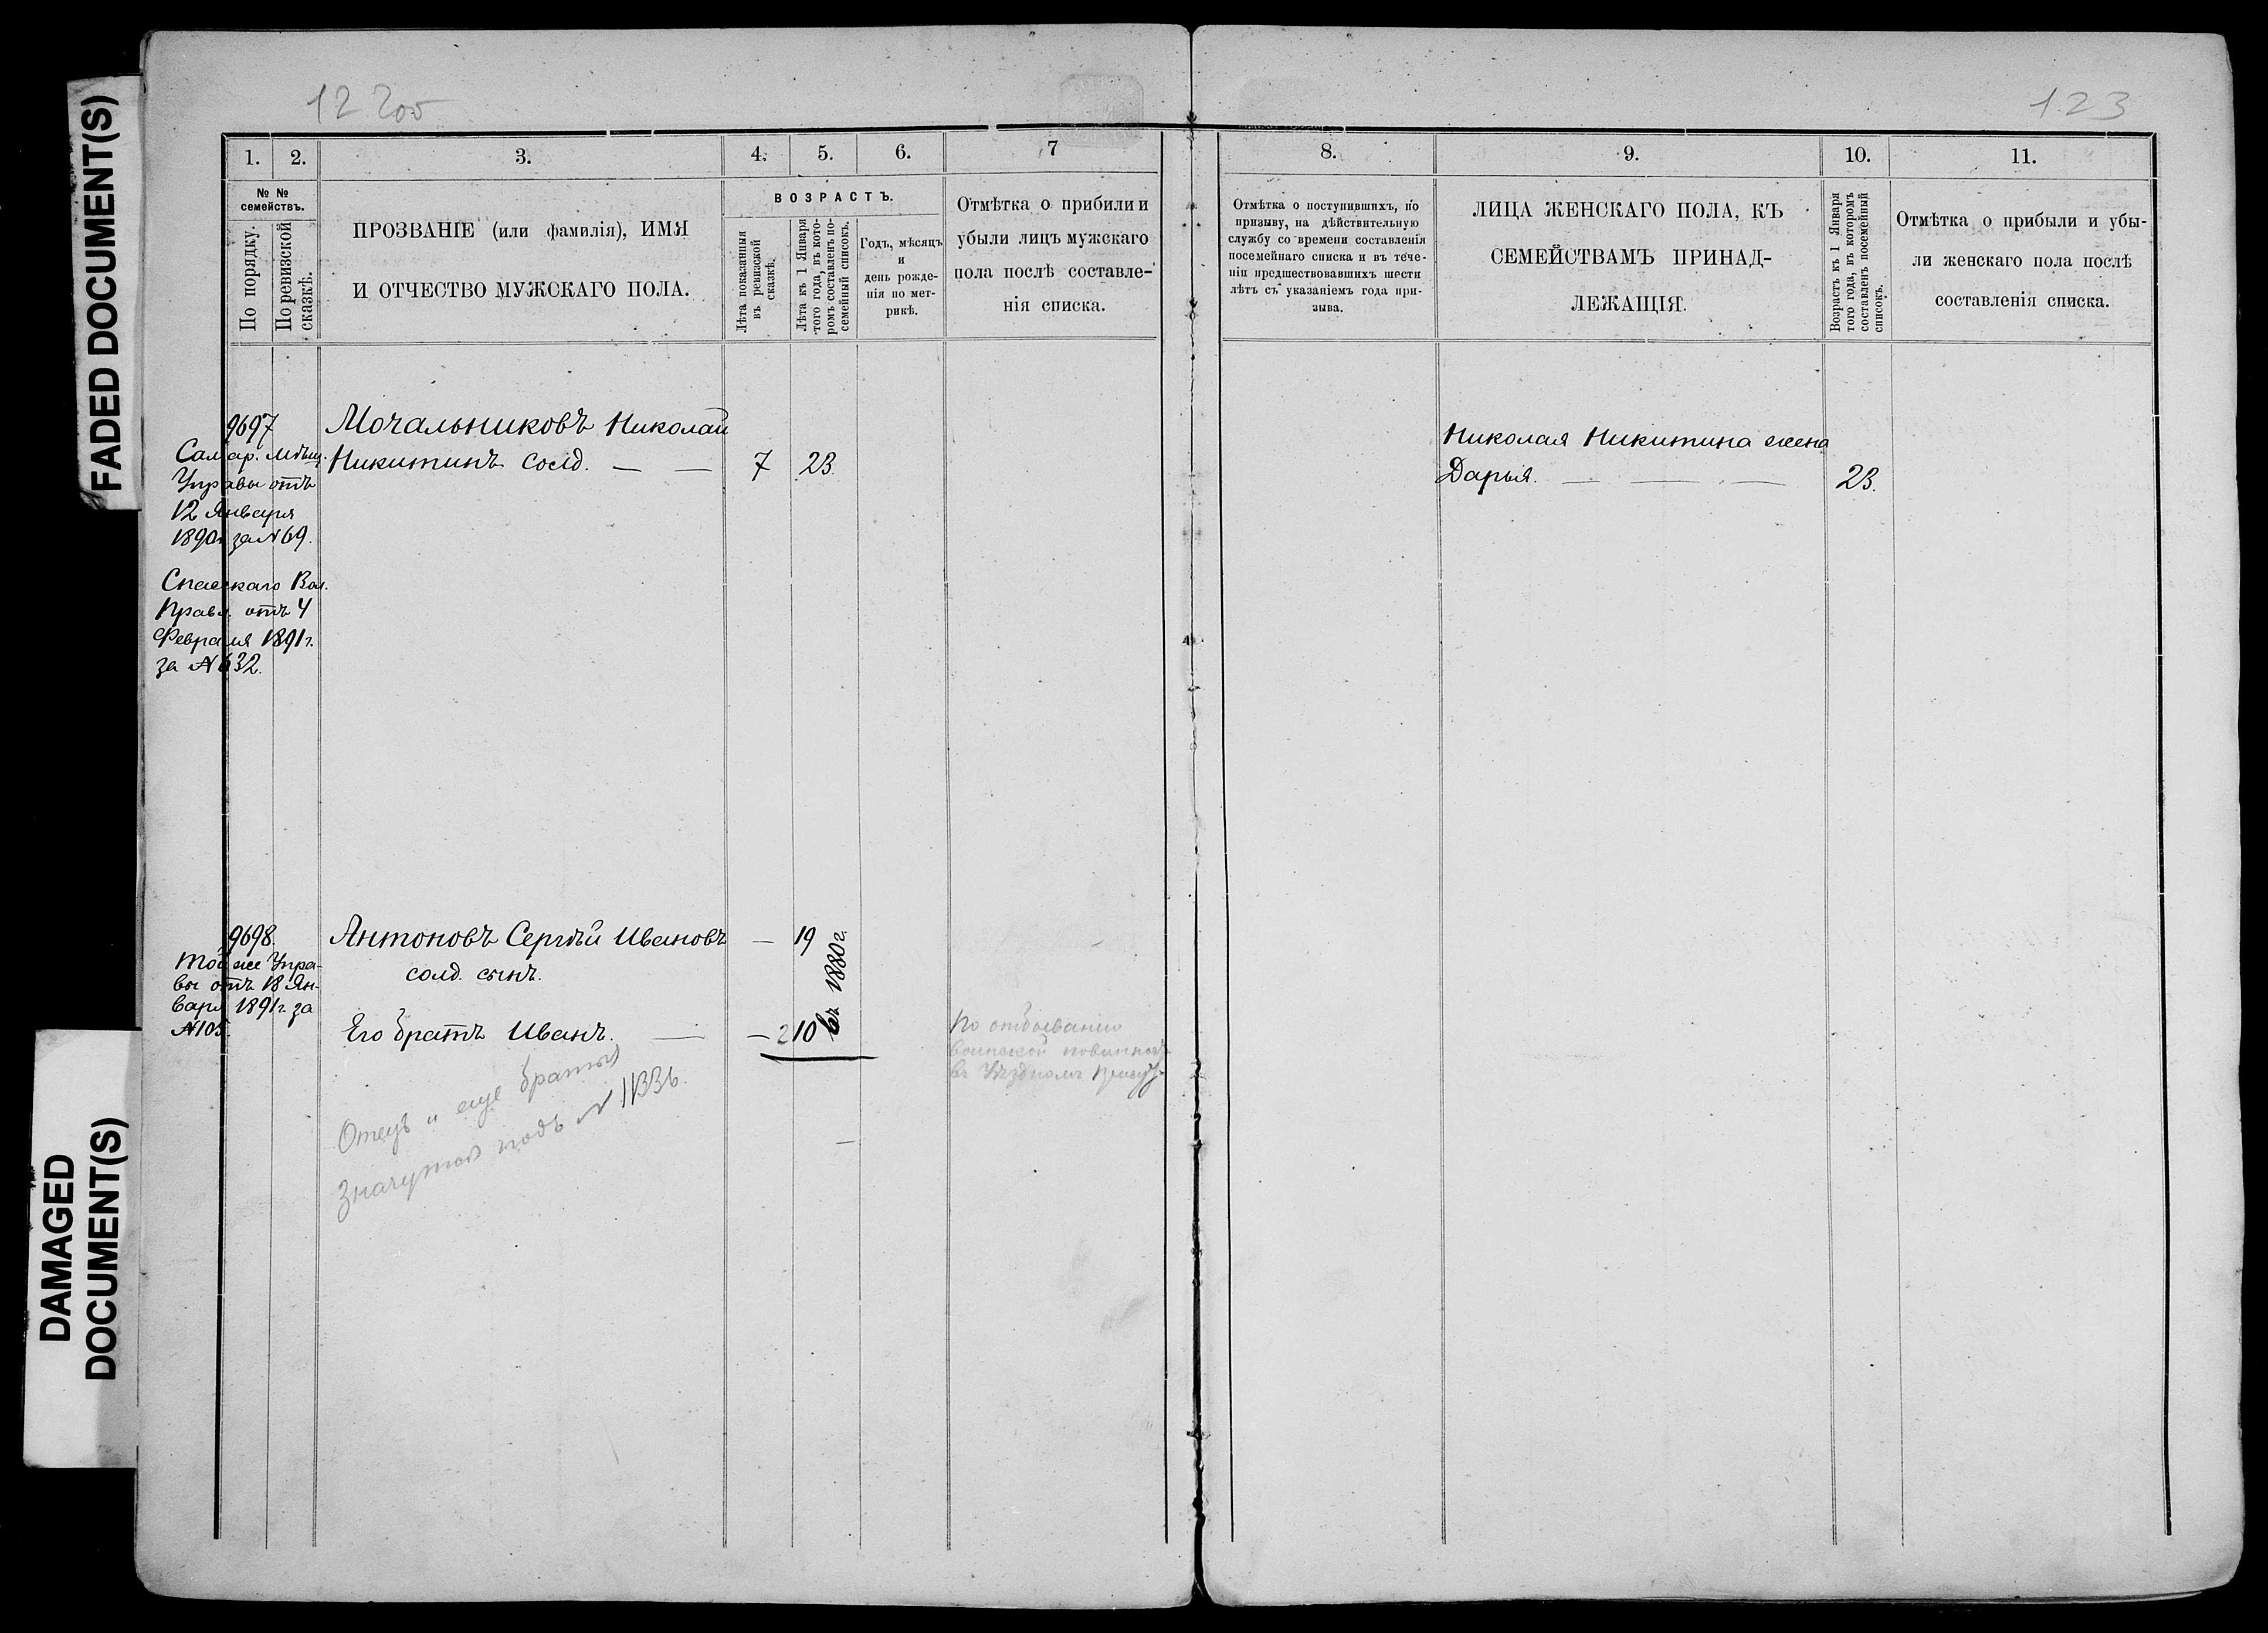 FADED DOCUMENT(S)
DAMAGED
DOCUMENT(S)
12 200
1.
2.
3.
4.
5.
6.
7
№ №
семействъ.
По порядку.
По ревизской
сказкѣ.
ПРОЗВАНІЕ (или фамилія), ИМЯ
И ОТЧЕСТВО МУЖСКАГО ПОЛА.
ВОЗРАСТЪ.
Лѣта показанныя
въ ревизской
сказкѣ.
Лѣта къ 1 Января
того года, въ кото-
ромъ составленъ по-
семейный списокъ.
Годъ, мѣсяцъ
и
день рожде-
нія по мет-
рикѣ.
Отмѣтка о прибили и
убыли лицъ мужскаго
пола послѣ составле-
нія списка.
9697
Самар. Мѣщ.
Управы отъ
12 Января
1890г за №69.
Спасскаго Вол.
Правл. отъ 4
Февраля 1891г.
за №632.
Мочальниковъ Николай
Никитинъ солд. — —
7
23.
9698.
Той же Упра-
вы отъ 18 Ян-
варя 1891г. за
№105.
Антоновъ Сергѣй Ивановъ
солд. сынъ.
— 19
въ 1880г.
Его братъ Иванъ. —
— 2 10
Отецъ и еще братья
значутся подъ №
По отбыванію
воинской повинност
въ Уѣздномъ
123
8.
9.
10.
11.
Отмѣтка о поступившихъ, по
призыву, на дѣйствительную
службу со времени составленія
посемейнаго списка и въ тече-
ніи предшествовавшихъ шести
лѣтъ съ указаніемъ года при-
зыва.
ЛИЦА ЖЕНСКАГО ПОЛА, КЪ
СЕМЕЙСТВАМЪ ПРИНАД-
ЛЕЖАЩІЯ.
Возрастъ къ 1 Января
того года, въ которомъ
составленъ посемейный
списокъ.
Отмѣтка о прибыли и убы-
ли женскаго пола послѣ
составленія списка.
Николая Никитина жена
Дарья. — — —
23.